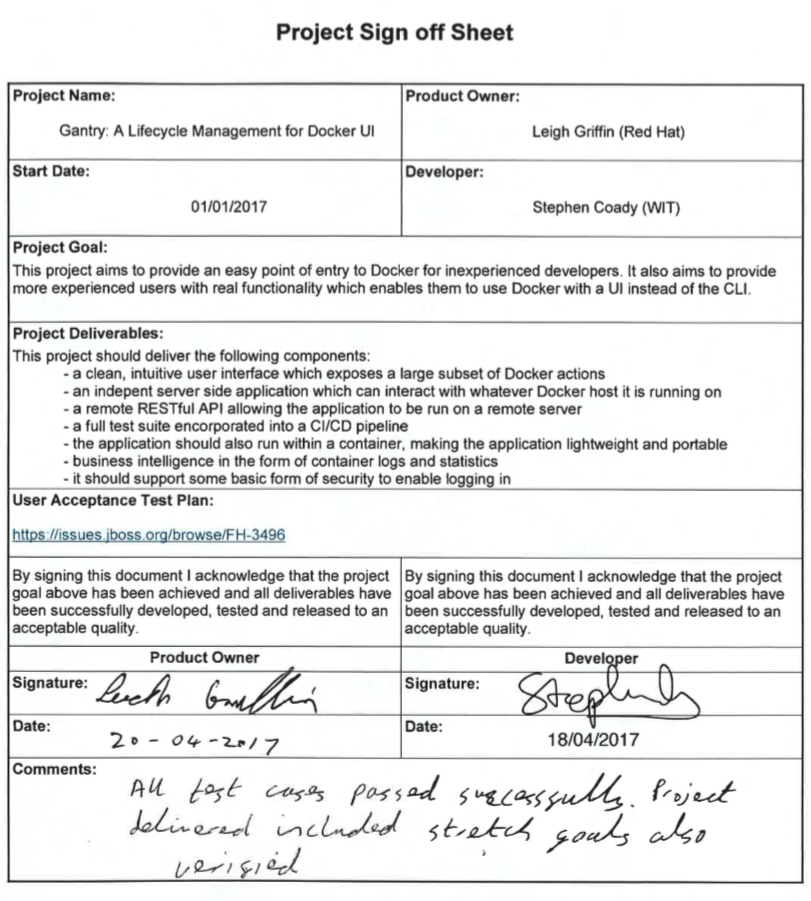 Project Sign off Sheet
Project Name:
Gantry: A Lifecycle Management for Docker UI
Product Owner:
Leigh Griffin (Red Hat)
Start Date:
01/01/2017
Developer:
Stephen Coady (WIT)
Project Goal:
This project aims to provide an easy point of entry to Docker for inexperienced developers. It also aims to provide
more experienced users with real functionality which enables them to use Docker with a UI instead of the CLI.
Project Deliverables:
This project should deliver the following components:
- a clean, intuitive user interface which exposes a large subset of Docker actions
- an indepent server side application which can interact with whatever Docker host it is running on
- a remote RESTful API allowing the application to be run on a remote server
- a full test suite encorporated into a CI/CD pipeline
- the application should also run within a container, making the application lightweight and portable
- business intelligence in the form of container logs and statistics
- it should support some basic form of security to enable logging in
User Acceptance Test Plan:
https://issues.jboss.org/browse/FH-3496
By signing this document I acknowledge that the project
goal above has been achieved and all deliverables have
been successfully developed, tested and released to an
acceptable quality.
By signing this document I acknowledge that the project
goal above has been achieved and all deliverables have
been successfully developed, tested and released to an
acceptable quality.
Product Owner
Developer
Signature:
Signature:
Date:
20-04-2017
Date:
18/04/2017
Comments:
All test cases passed successfully. Project
delivered included stretch goals also
verified